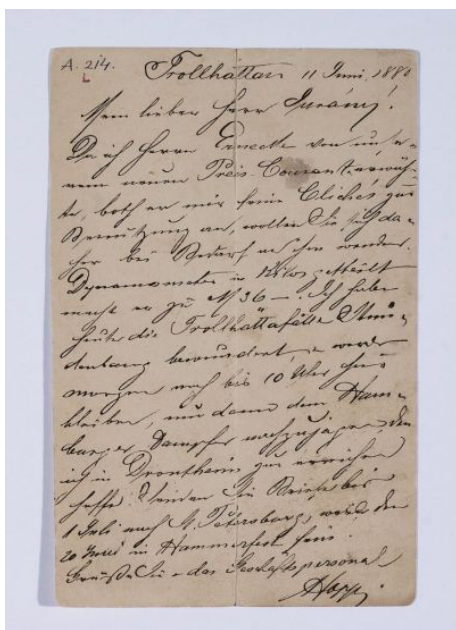 A. 214.
Trollhättan 11 Juni, 1880
Mein lieber Herr Surány!
Da ich Herrn Ernecke von unse-
rem neuen Preis-Courant erwähn-
te, both er mir seine Clichés zur
Benützung an, wollen Sie sich da-
her bei Bedarf an ihn wenden.
Dynamometer in Kilos getheilt
macht er zu M 36 —. Ich habe
heute die Trollhättafälle Stun-
denlang bewundert, werde
morgen noch bis 10 Uhr hier
bleiben, um dann dem Ham-
burger Dampfer nachzujagen, den
ich in Drontheim zu erreichen
hoffe. Senden Sie Briefe bis
1 Juli nach St. Petersburg, werde den
20 Juni in Hammerfest sein.
Grüße Sie das Geschäftspersonal